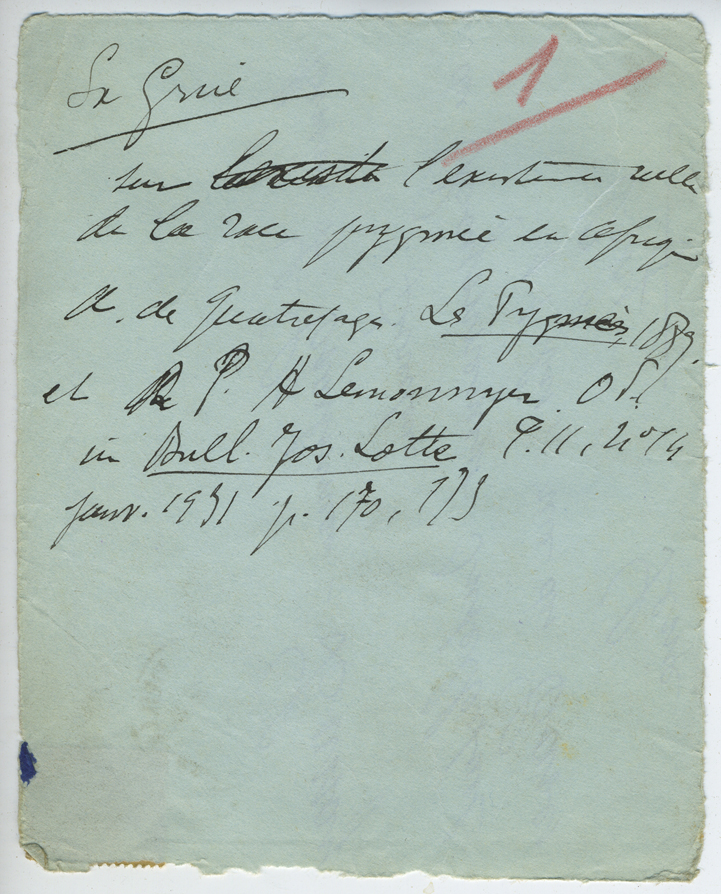 La Grue
1
sur l'existence réelle
de la race pygmée en Afriq
A. de Quatrefages. Les Pygmées, 1887.
et P. A Lemonnyer O.P.
in Bull. Jos. Lotte T. II, n° 14
janv. 1931 p. 170, 173